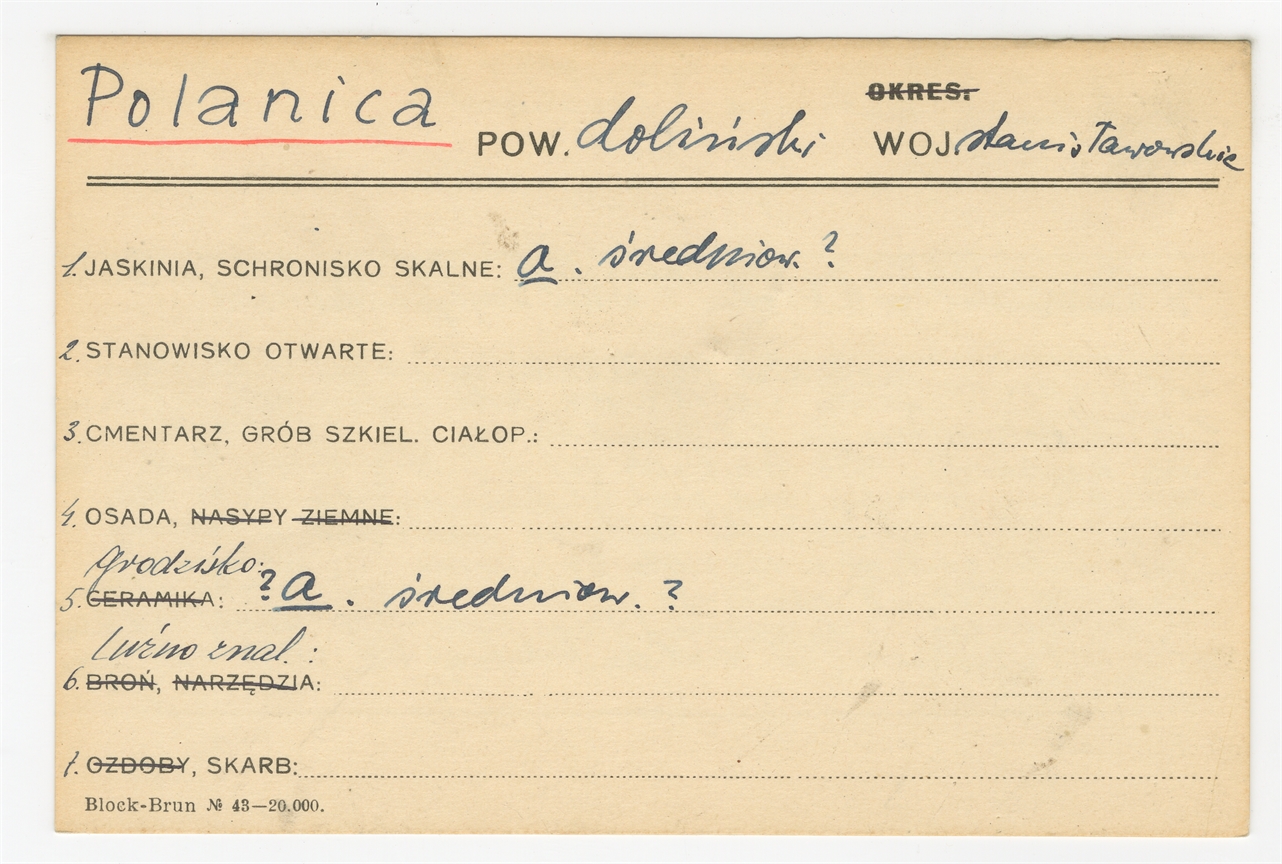 Polanica
OKRES.
POW. doliński WOJ. stanisławowskie
1. JASKINIA, SCHRONISKO SKALNE: a. średniow. ?
2. STANOWISKO OTWARTE:
3. CMENTARZ, GRÓB SZKIEL. CIAŁOP.:
4. OSADA, NASYPY ZIEMNE:
grodzisko:
5. CERAMIKA: ? a. średniow. ?
luźno znal.:
6. BROŃ, NARZĘDZIA:
7. OZDOBY, SKARB:
Block-Brun № 43—20.000.